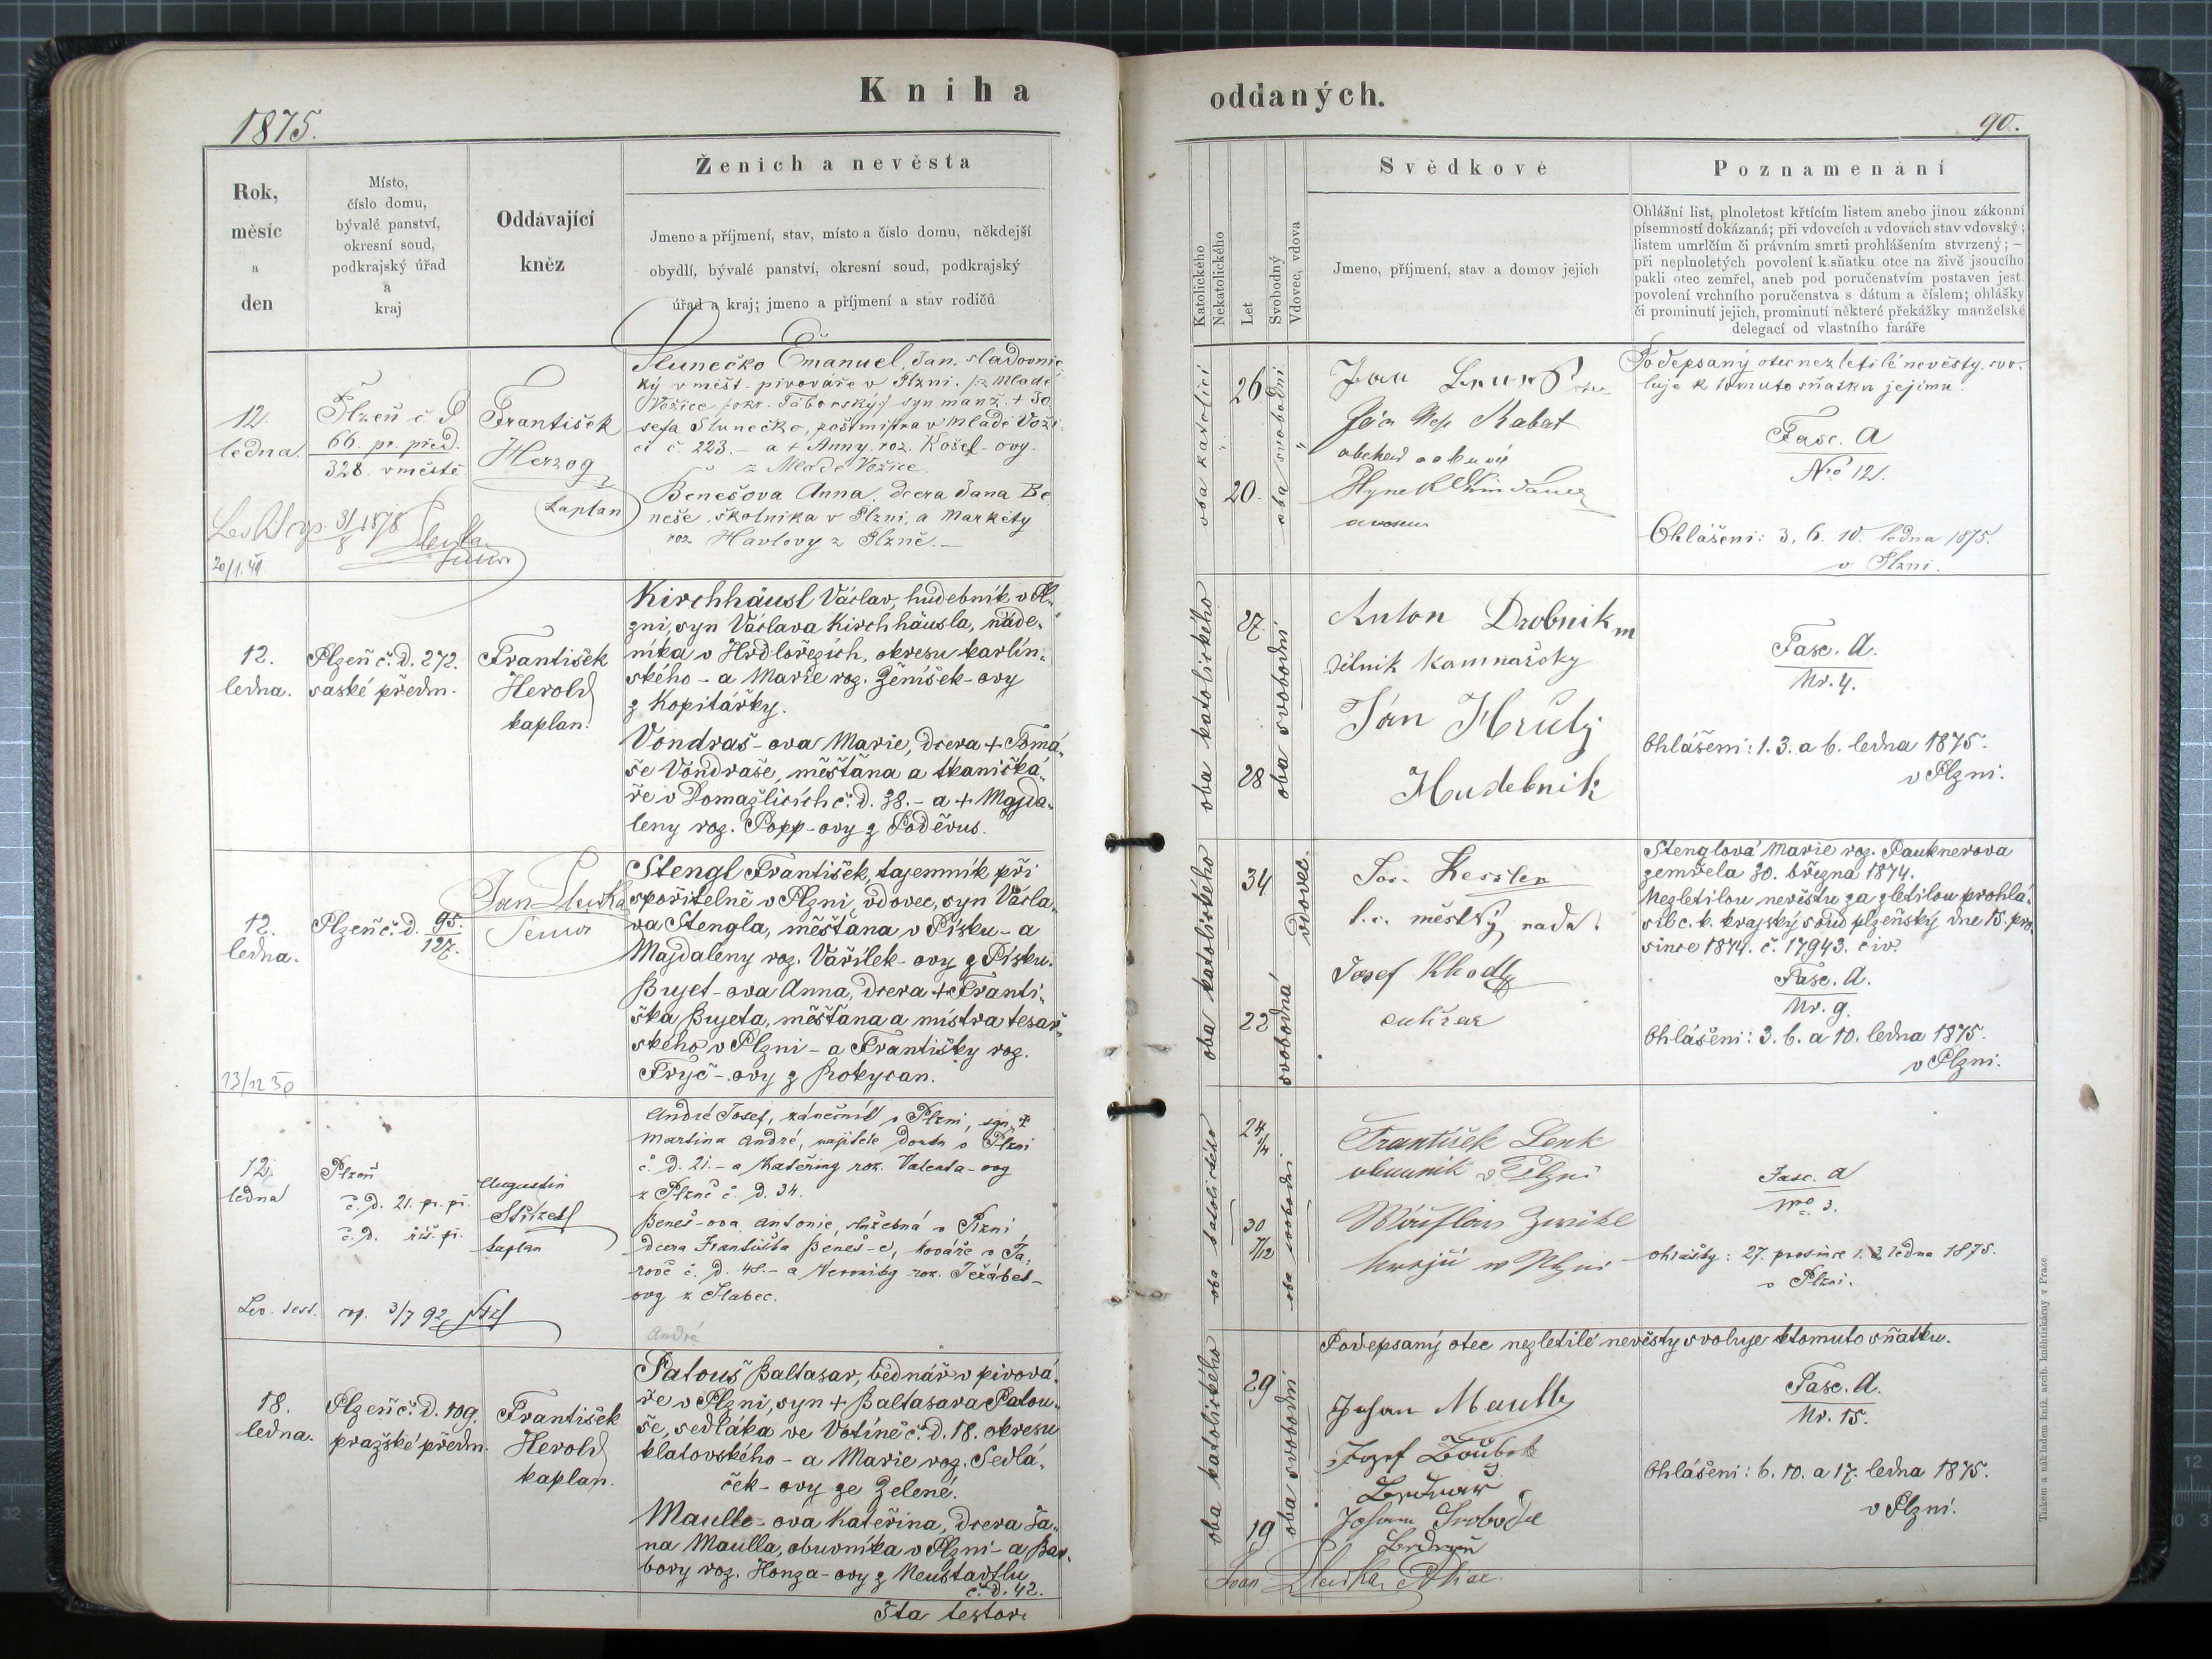 Kniha
1875.
Rok,
měsíc
a
den
Místo,
číslo domu,
bývalé panství,
okresní soud,
podkrajský úřad
a
kraj
Oddávající
kněz
Ženich a nevěsta
Jmeno a příjmení, stav, místo a číslo domu, někdejší
obydlí, bývalé panství, okresní soud, podkrajský
úřad a kraj; jmeno a příjmení a stav rodičů
12.
ledna.
Plzeň č. d
66. pr. před.
328. v městě
František
Herzog
kaplan
Slunečko Emanuel, Jan, sladovnic
ký v měst. pivováře v Plzni. /:z Mladé
Vožice /okr. Táborský:/ syn manž. + Jo
sefa Slunečko, poštmistra v Mladé Voži
ci č. 223. - a + Anny, roz. Košel-ovy
z Mladé Vožice.
Benešova Anna, dcera Jana Be
neše, školníka v Plzni, a Markéty
roz Havlovy z Plzně. -
31/8 1878
20/1.41
12.
ledna.
Plzeň č. d. 272.
saské předm.
František
Herold
kaplan.
Kirchhäusl Václav, hudebník v Pl-
zni, syn Václava Kirchhäusla, náde-
níka v Hrdlořezích, okresu karlín-
ského - a Marie roz. Ženíšek-ovy
z Kopitářky.
Vondraš-ova Marie, dcera + Tomá-
še Vondraše, měšťana a tkaničká-
ře v Domažlicích č. d. 38. - a + Magda-
leny roz. Popp-ovy z Poděvus.
12.
ledna.
Plzeň č. d. 95.
127.
Jan Sleička
Stengl František, tajemník při
spořitelně v Plzni, vdovec, syn Václa-
va Stengla, měšťana v Písku - a
Majdaleny roz. Vařílek-ovy z Písku.
Bujet-ova Anna, dcera + Franti-
ška Bujeta, měšťana a mistra tesař-
ského v Plzni - a Františky roz.
Fryč-ovy z Rokycan.
13/12 50
12.
ledna
Plzeň
č. d. 21. pr. př.
č. d. říš. př.
Augustin
Střízek
kaplan
André Josef, zámečník v Plzni, syn +
Martina André, majitele domu v Plzni
č. d. 21. - a Kateřiny roz. Valenta-ovy
z Plzně č. d. 34.
Beneš-ova Antonie, služebná v Plzni,
dcera Františka Beneš-e, kováře v Ta-
rově č. d. 48. - a Veroniky roz. Jeřábek-
ovy z Slabec.
3/7 92
André
18.
ledna.
Plzeň č. d. 109.
pražské předm.
František
Herold
kaplan.
Patouš Baltasar, bednář v pivová-
ře v Plzni, syn + Baltasara Patou-
še, sedláka ve Votíně č. d. 18. okresu
klatovského - a Marie roz. Sedlá-
ček-ovy ze Zelené.
Maulle-ova Kateřina, dcera Ja-
na Maulla, obuvníka v Plzni - a Bar-
bory roz. Honza-ovy z Neustadtlu
č. d. 42.
Ita testor
oddaných.
90.
Katolického
Nekatolického
Let
Svobodný
Vdovec, vdova
Svědkové
Jmeno, příjmení, stav a domov jejich
Poznamenání
Ohlášní list, plnoletost křtícím listem anebo jinou zákonní
písemností dokázaná; při vdovcích a vdovách stav vdovský
listem umrlčím či právním smrti prohlášením stvrzený; —
při neplnoletých povolení k sňatku otce na živě jsoucího
pakli otec zemřel, aneb pod poručenstvím postaven jest.
povolení vrchního poručenstva s dátum a číslem; ohlášky
či prominutí jejich, prominutí některé překážky manželské
delegací od vlastního faráře
oba katolíci
26
20.
oba svobodni
Podepsaný otec nezletilé nevěsty svo-
luje k tomuto sňatku jejímu.
Fasc. A
Nro 12.
Ohlášeni: 3. 6. 10. ledna 1875.
v Plzni.
oba katolického
27
28
oba svobodni
Anton Drobnik
dělnik kamnařsky
Ján Hrůly
Hudebnik
Fasc. A.
Nr. 4.
Ohlášeni: 1. 3. a 6. ledna 1875.
v Plzni.
oba katolického
34
22
vdovec.
svobodná
Kessler
c. k. městký rada.
Josef Khodl
cukřar
Stenglová Marie roz. Pauknerova
zemřela 30. března 1874.
Nezletilou nevěstu za zletilou prohlá-
sil c. k. krajský soud plzeňský dne 15. pro-
since 1874. č. 17943. civ.
Fasc. A.
Nr. 9.
Ohlášeni: 3. 6. a 10. ledna 1875.
v Plzni.
oba katolického
24
30
7/12
oba svobodni
František Lenk
obuvnik v Plzni
Fasc. A
Nro 3.
Ohlášky: 27. prosince 1. 3. ledna 1875.
v Plzni.
oba katolického
29
19
oba svobodni
Podepsaný otec nezletilé nevěsty svoluje k tomuto sňatku.
Johan Maulle
Jozef
Bednař
Johann Svoboda
Fasc. A.
Nr. 15.
Ohlášeni: 6. 10. a 17. ledna 1875.
v Plzni.
Tiskem a nákladem kníž. arcib. knihtiskárny v Praze